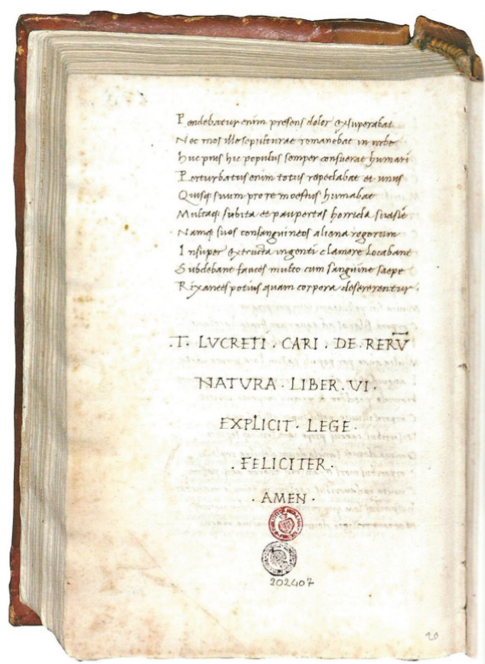 Pendebatur enim presens dolor exsuperabat
Nec mos ille sepulturae remanebat in urbe
Huc prius hic populus semper consuerat humari
Perturbatus enim totus repedabat et unus
Quisq suum pro re moestus humabat
Multaq subita et paupertas horrida suasit
Namq suos consanguineos aliena rogorum
Insuper extructa ingenti clamore locabant
Subdebant fauces multo cum sanguine saepe
Rixantes potius quam corpora desererentur.
.T. LUCRETI. CARI. DE. RERŪ
NATURA. LIBER. VI.
EXPLICIT. LEGE.
.FELICITER.
.AMEN.
202407